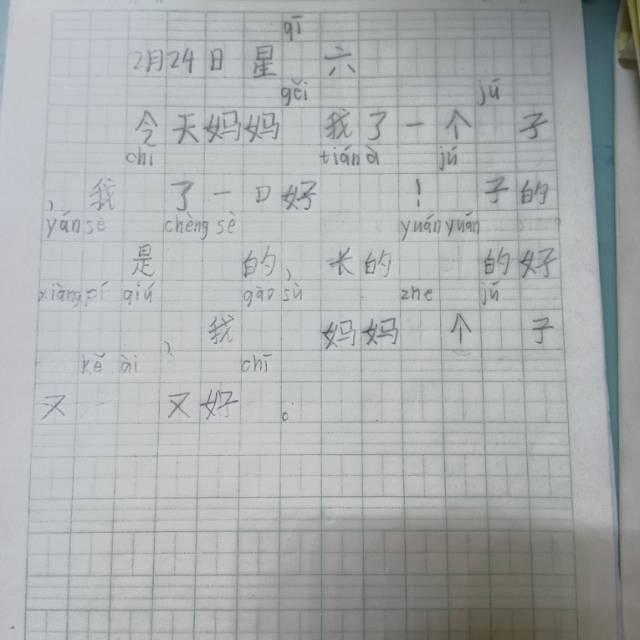 qī
2月24日星 六
gěi jú
今天妈妈 我了一个 子
chī tián ò jú
,我 了一口好 ! 子的
yán sè chèng sè yuán yuán
是 的,长的 的好
xiàng pí qiú gào sù zhe jú
、我 妈妈 个 子
kě ài chī
又 又好 。